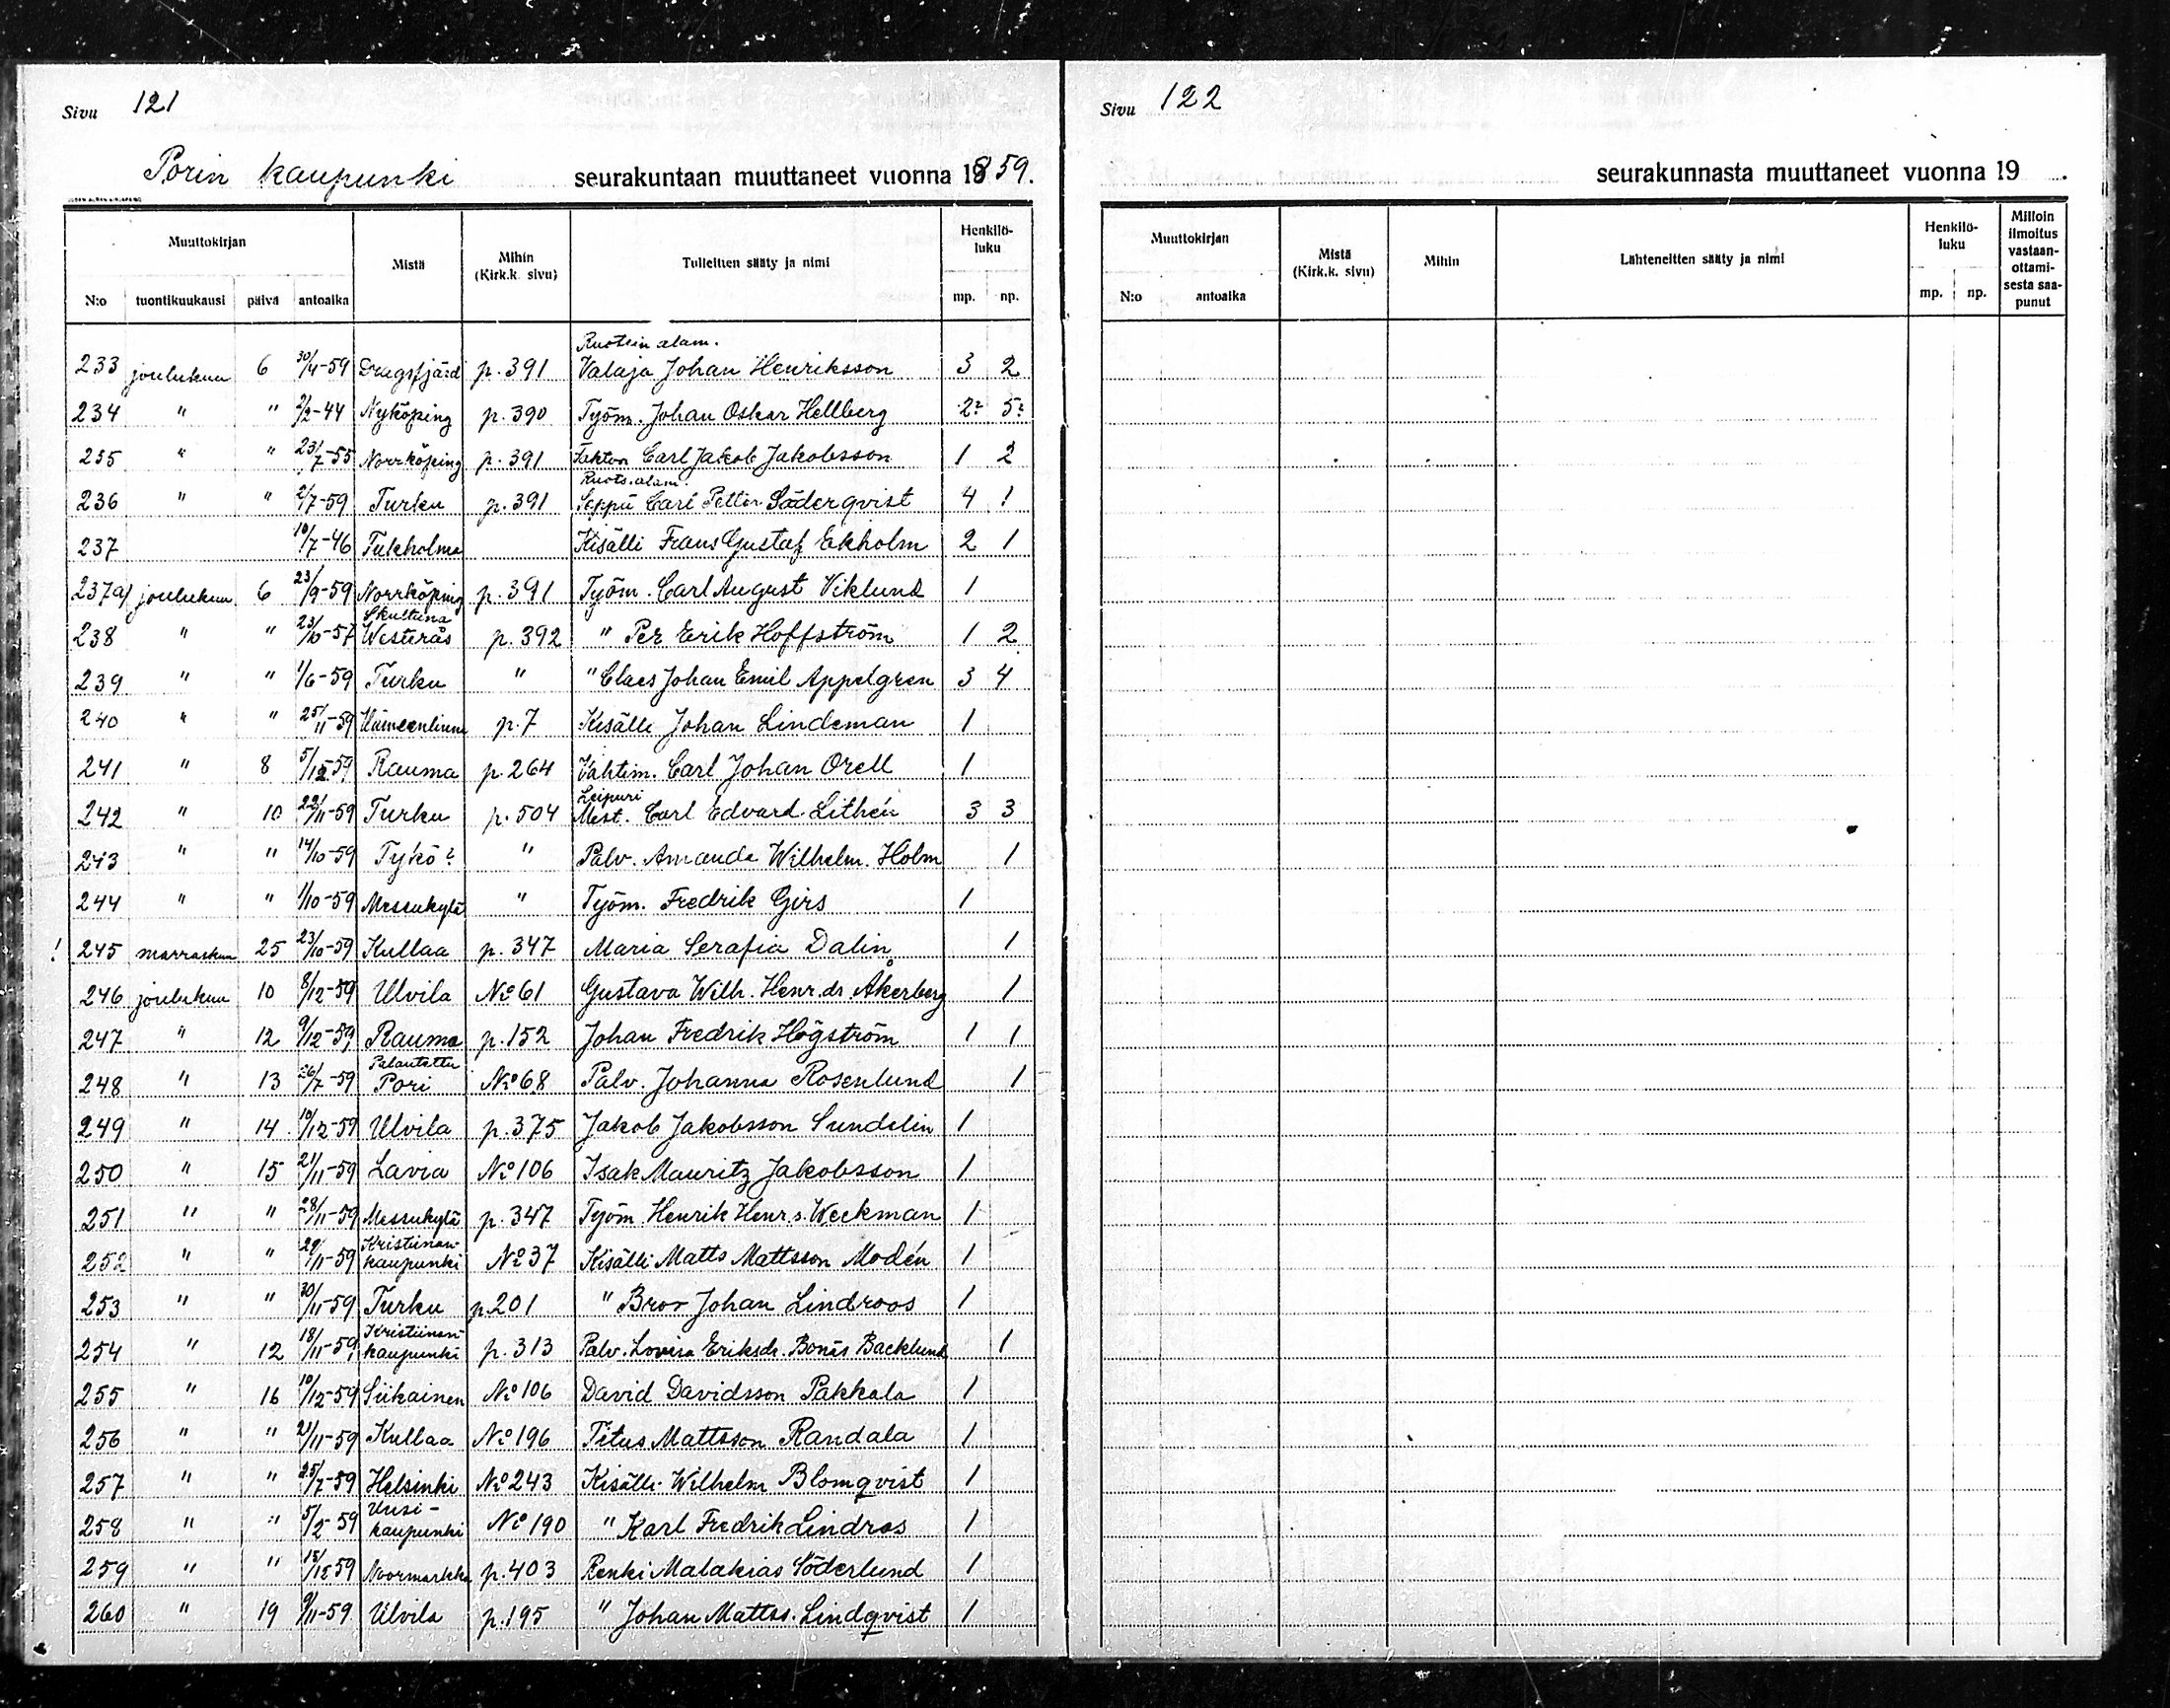 Sivu 121
Porin kaupunki seurakuntaan muuttaneet vuonna 1859.
Muuttokirjan Mistä Mihin (Kirk.k. sivu) Tulleitten sääty ja nimi Henkilö-luku
N:o tuontikuukausi päivä antoaika mp. np.
Ruotsin alam.
233 joulukuu 6 30/4-59 Dragsfjärd p. 391 Valaja Johan Henriksson 3 2
234 " " 2/2-44 Nyköping p. 390 Työm. Johan Oskar Hellberg 2? 5?
235 " " 23/7-55 Norrköping p. 391 Faktori Carl Jakob Jakobsson 1 2
Ruots. alam.
236 " " 2/7-59 Turku p. 391 Seppä Carl Petter Söderqvist 4 1
237 10/7-46 Tukholma Kisälli Frans Gustaf Ekholm 2 1
237a/ joulukuu 6 23/9-59 Norrköping p. 391 Työm. Carl August Viklund 1
Skultuna
238 " " 23/10-57 Westerås p. 392 " Per Erik Hoffström 1 2
239 " " 1/6-59 Turku " " Claes Johan Emil Appelgren 3 4
240 " " 25/11-59 Hämeenlinna p. 7 Kisälli Johan Lindeman 1
241 " 8 5/12-59 Rauma p. 264 Vahtim. Carl Johan Orell 1
Leipuri
242 " 10 22/11-59 Turku p. 504 Mest. Carl Edvard Lithén 3 3
243 " " 14/10-59 Tykö? " Palv. Amanda Wilhelm. Holm 1
244 " " 1/10-59 Messukylä " Työm. Fredrik Girs 1
! 245 marraskuu 25 23/10-59 Kullaa p. 347 Maria Serafia Dalin 1
246 joulukuu 10 8/12-59 Ulvila No 61 Gustava Wilh. Henr.dr. Åkerberg 1
247 " 12 9/12-59 Rauma p. 152 Johan Fredrik Högström 1 1
Palautettu
248 " 13 26/7-59 Pori No 68 Palv. Johanna Rosenlund 1
249 " 14 10/12-59 Ulvila p. 375 Jakob Jakobsson Sundelin 1
250 " 15 21/11-59 Lavia No 106 Isak Mauritz Jakobsson 1
251 " " 28/11-59 Messukylä p. 347 Työm. Henrik Henr.s. Weckman 1
Kristiinan-
252 " " 29/11-59 kaupunki No 37 Kisälli Matts Mattsson Modén 1
253 " " 30/11-59 Turku p. 201 " Bror Johan Lindroos 1
Kristiinan-
254 " 12 18/11-59 kaupunki p. 313 Palv. Lovisa Eriksdr. Bonäs Backlund 1
255 " 16 10/12-59 Siikainen No 106 David Davidsson Pakkala 1
256 " " 21/11-59 Kullaa No 196 Titus Mattsson Randala 1
257 " " 25/7-59 Helsinki No 243 Kisälli Wilhelm Blomqvist 1
Uusi-
258 " " 5/2-59 kaupunki No 190 " Karl Fredrik Lindros 1
259 " " 15/12-59 Noormarkku p. 403 Renki Malakias Söderlund 1
260 " 19 9/11-59 Ulvila p. 195 " Johan Mattss. Lindqvist 1
Sivu 122
seurakunnasta muuttaneet vuonna 19 .
Muuttokirjan Mistä (Kirk.k. sivu) Mihin Lähteneitten sääty ja nimi Henkilö-luku Milloin ilmoitus vastaan-ottami-sesta saa-punut
N:o antoaika mp. np.